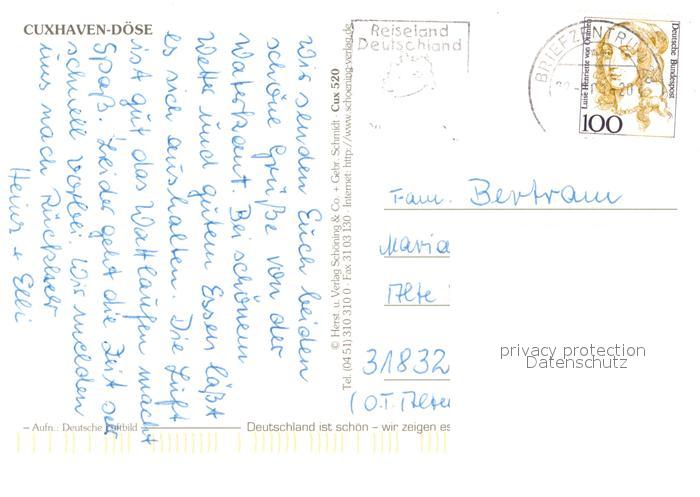 CUXHAVEN-DÖSE
Wir senden Euch beiden
schöne Grüße von der
Waterkant. Bei schönem
Wetter und gutem Essen läßt
es sich aushalten. Die Luft
ist gut das Wattlaufen macht
Spaß. Leider geht die Zeit sehr
schnell vorbei. Wir melden
uns nach Rückkehr
Heinz + Elli
– Aufn.: Deutsche Luftbild
© Herst. u. Verlag Schöning & Co. + Gebr. Schmidt · Cux 520
Tel. (04 51) 310 310 0 · Fax 31 03 130 · Internet: http://www.schoening-verlag.de
Deutschland ist schön – wir zeigen es
Reiseland
Deutschland
BRIEFZENTRUM
Luise Henriette von Oranien
Deutsche Bundespost
100
Fam. Bertram
Maria
Alte
31832
(O.T. Alten
privacy protection
Datenschutz